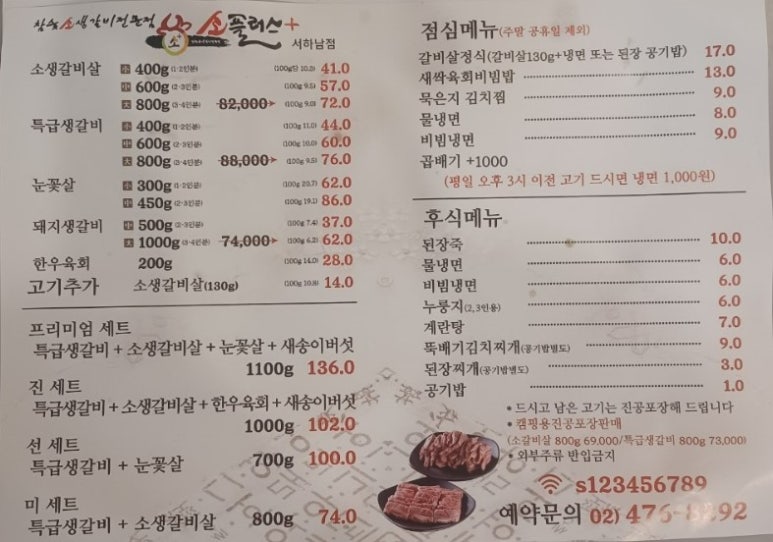 참숯 소생갈비전문점 소플러스+
서하남점
소생갈비살 小 400g (1-2인분) (100g당 10.3) 41.0
中 600g (2-3인분) (100g 9.5) 57.0
大 800g (3-4인분) 82,000 (100g 9.0) 72.0
특급생갈비 小 400g (1-2인분) (100g 11.0) 44.0
中 600g (2-3인분) (100g 10.0) 60.0
大 800g (3-4인분) 88,000 (100g 9.5) 76.0
눈꽃살 小 300g (1-2인분) (100g 20.7) 62.0
中 450g (2-3인분) (100g 19.1) 86.0
돼지생갈비 中 500g (2-3인분) (100g 7.4) 37.0
大 1000g (3-4인분) 74,000 (100g 6.2) 62.0
한우육회 200g (100g 14.0) 28.0
고기추가 소생갈비살(130g) (100g 10.8) 14.0
프리미엄 세트
특급생갈비 + 소생갈비살 + 눈꽃살 + 새송이버섯
1100g 136.0
진 세트
특급생갈비 + 소생갈비살 + 한우육회 + 새송이버섯
1000g 102.0
선 세트
특급생갈비 + 눈꽃살 700g 100.0
미 세트
특급생갈비 + 소생갈비살 800g 74.0
점심메뉴 (주말 공휴일 제외)
갈비살정식(갈비살130g+냉면 또는 된장 공기밥) 17.0
새싹육회비빔밥 13.0
묵은지 김치찜 9.0
물냉면 8.0
비빔냉면 9.0
곱배기 +1000
(평일 오후 3시 이전 고기 드시면 냉면 1,000원)
후식메뉴
된장죽 10.0
물냉면 6.0
비빔냉면 6.0
누룽지(2,3인용) 6.0
계란탕 7.0
뚝배기김치찌개(공기밥별도) 9.0
된장찌개(공기밥별도) 3.0
공기밥 1.0
• 드시고 남은 고기는 진공포장해 드립니다
• 캠핑용진공포장판매
(소갈비살 800g 69,000/특급생갈비 800g 73,000)
• 외부주류 반입금지
s123456789
예약문의 02) 476-8292